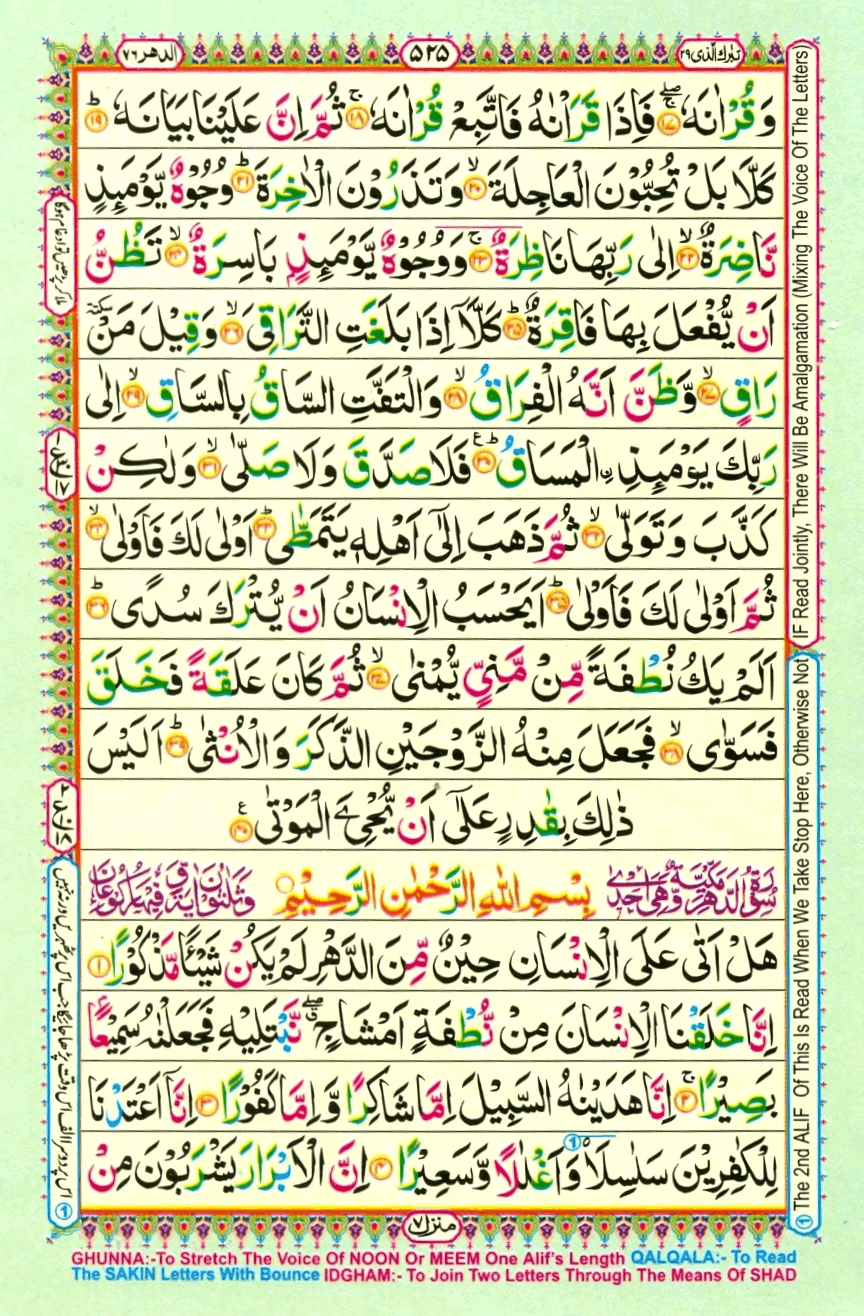 تبٰرك الّذى ٢٩
٥٢٥
الدهر ٧٦
وَ قُرْاٰنَهٗ ﴿١٧﴾ فَاِذَا قَرَاْنٰهُ فَاتَّبِعْ قُرْاٰنَهٗ ﴿١٨﴾ ثُمَّ اِنَّ عَلَيْنَا بَيَانَهٗ ﴿١٩﴾
كَلَّا بَلْ تُحِبُّوْنَ الْعَاجِلَةَ ﴿٢٠﴾ وَتَذَرُوْنَ الْاٰخِرَةَ ﴿٢١﴾ وُجُوْهٌ يَّوْمَىِٕذٍ
نَّاضِرَةٌ ﴿٢٢﴾ اِلٰى رَبِّهَا نَاظِرَةٌ ﴿٢٣﴾ وَوُجُوْهٌ يَّوْمَىِٕذٍۭ بَاسِرَةٌ ﴿٢٤﴾ تَظُنُّ
اَنْ يُّفْعَلَ بِهَا فَاقِرَةٌ ﴿٢٥﴾ كَلَّاۤ اِذَا بَلَغَتِ التَّرَاقِيَ ﴿٢٦﴾ وَقِيْلَ مَنْ سكتة
رَاقٍ ﴿٢٧﴾ وَّظَنَّ اَنَّهُ الْفِرَاقُ ﴿٢٨﴾ وَالْتَفَّتِ السَّاقُ بِالسَّاقِ ﴿٢٩﴾ اِلٰى
رَبِّكَ يَوْمَىِٕذِ ِ۟الْمَسَاقُ ﴿٣٠﴾ فَلَا صَدَّقَ وَلَا صَلّٰى ﴿٣١﴾ وَلٰكِنْ
كَذَّبَ وَتَوَلّٰى ﴿٣٢﴾ ثُمَّ ذَهَبَ اِلٰۤى اَهْلِهٖ يَتَمَطّٰى ﴿٣٣﴾ اَوْلٰى لَكَ فَاَوْلٰى ﴿٣٤﴾
ثُمَّ اَوْلٰى لَكَ فَاَوْلٰى ﴿٣٥﴾ اَيَحْسَبُ الْاِنْسَانُ اَنْ يُّتْرَكَ سُدًى ﴿٣٦﴾
اَلَمْ يَكُ نُطْفَةً مِّنْ مَّنِيٍّ يُّمْنٰى ﴿٣٧﴾ ثُمَّ كَانَ عَلَقَةً فَخَلَقَ
فَسَوّٰى ﴿٣٨﴾ فَجَعَلَ مِنْهُ الزَّوْجَيْنِ الذَّكَرَ وَالْاُنْثٰى ﴿٣٩﴾ اَلَيْسَ
ذٰلِكَ بِقٰدِرٍ عَلٰۤى اَنْ يُّحْيِۦَ الْمَوْتٰى ﴿٤٠﴾
سُوْرَةُ الدَّهْرِ مَكِّيَّةٌ وَّهِيَ اِحْدٰى بِسْمِ اللهِ الرَّحْمٰنِ الرَّحِيْمِ وَثَلٰثُوْنَ اٰيَةً وَّفِيْهَا رُكُوْعَانِ
هَلْ اَتٰى عَلَى الْاِنْسَانِ حِيْنٌ مِّنَ الدَّهْرِ لَمْ يَكُنْ شَيْـًٔا مَّذْكُوْرًا ﴿١﴾
اِنَّا خَلَقْنَا الْاِنْسَانَ مِنْ نُّطْفَةٍ اَمْشَاجٍ نَّبْتَلِيْهِ فَجَعَلْنٰهُ سَمِيْعًۢا
بَصِيْرًا ﴿٢﴾ اِنَّا هَدَيْنٰهُ السَّبِيْلَ اِمَّا شَاكِرًا وَّ اِمَّا كَفُوْرًا ﴿٣﴾ اِنَّاۤ اَعْتَدْنَا
لِلْكٰفِرِيْنَ سَلٰسِلَا۟ ① وَاَغْلٰلًا وَّسَعِيْرًا ﴿٤﴾ اِنَّ الْاَبْرَارَ يَشْرَبُوْنَ مِنْ
منزل ٧
IF Read Jointly, There Will Be Amalgamation (Mixing The Voice Of The Letters)
① The 2nd ALIF Of This Is Read When We Take Stop Here, Otherwise Not
ملا کر پڑھیں تو ادغام ہوگا
① اس پر دوسرا الف اس وقت پڑھا جائیگا جب اس پر ٹھہریں ورنہ نہیں
GHUNNA:-To Stretch The Voice Of NOON Or MEEM One Alif's Length QALQALA:- To Read
The SAKIN Letters With Bounce IDGHAM:- To Join Two Letters Through The Means Of SHAD